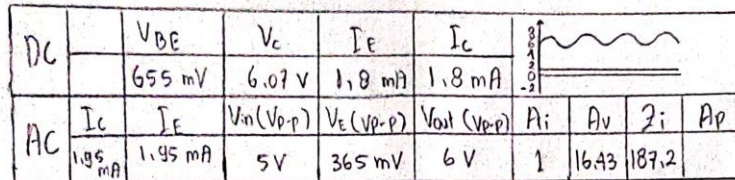 DC V_BE V_C I_E I_C
655 mV 6.07 V 1,8 mA 1,8 mA
8
6
4
2
0
-2
AC I_C I_E Vin (Vp-p) V_E (Vp-p) Vout (Vp-p) Ai Av Zi Ap
1,95 mA 1.95 mA 5V 365 mV 6 V 1 16.43 187.2